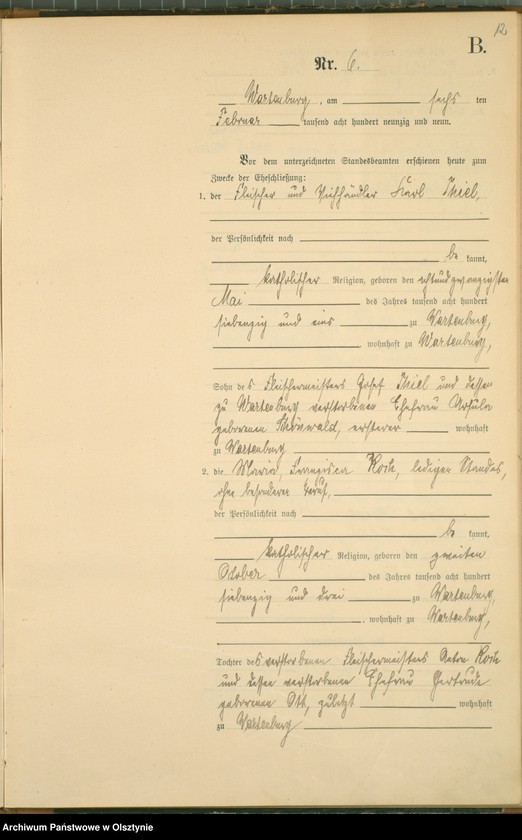 12
B.
Nr. 6.
Wartenburg, am sechs ten
Februar tausend acht hundert neunzig und neun.
Vor dem unterzeichneten Standesbeamten erschienen heute zum
Zwecke der Eheschließung:
1. der Fleischer und Viehhändler Karl Thiel,
der Persönlichkeit nach
be kannt,
katholischer Religion, geboren den achtundzwanzigsten
Mai des Jahres tausend acht hundert
siebenzig und eins zu Wartenburg,
, wohnhaft zu Wartenburg,
Sohn des Fleischermeisters Josef Thiel und dessen
zu Wartenburg verstorbenen Ehefrau Ursula
geborenen Schönwald, ersterer wohnhaft
zu Wartenburg
2. die Maria, Franzisca Koch, ledigen Standes,
ohne besonderen Beruf,
der Persönlichkeit nach
be kannt,
katholischer Religion, geboren den zweiten
October des Jahres tausend acht hundert
siebenzig und drei zu Wartenburg,
, wohnhaft zu Wartenburg,
Tochter des verstorbenen Fleischermeisters Anton Koch
und dessen verstorbenen Ehefrau Gertrude
geborenen Ott, zuletzt wohnhaft
zu Wartenburg
Archiwum Państwowe w Olsztynie